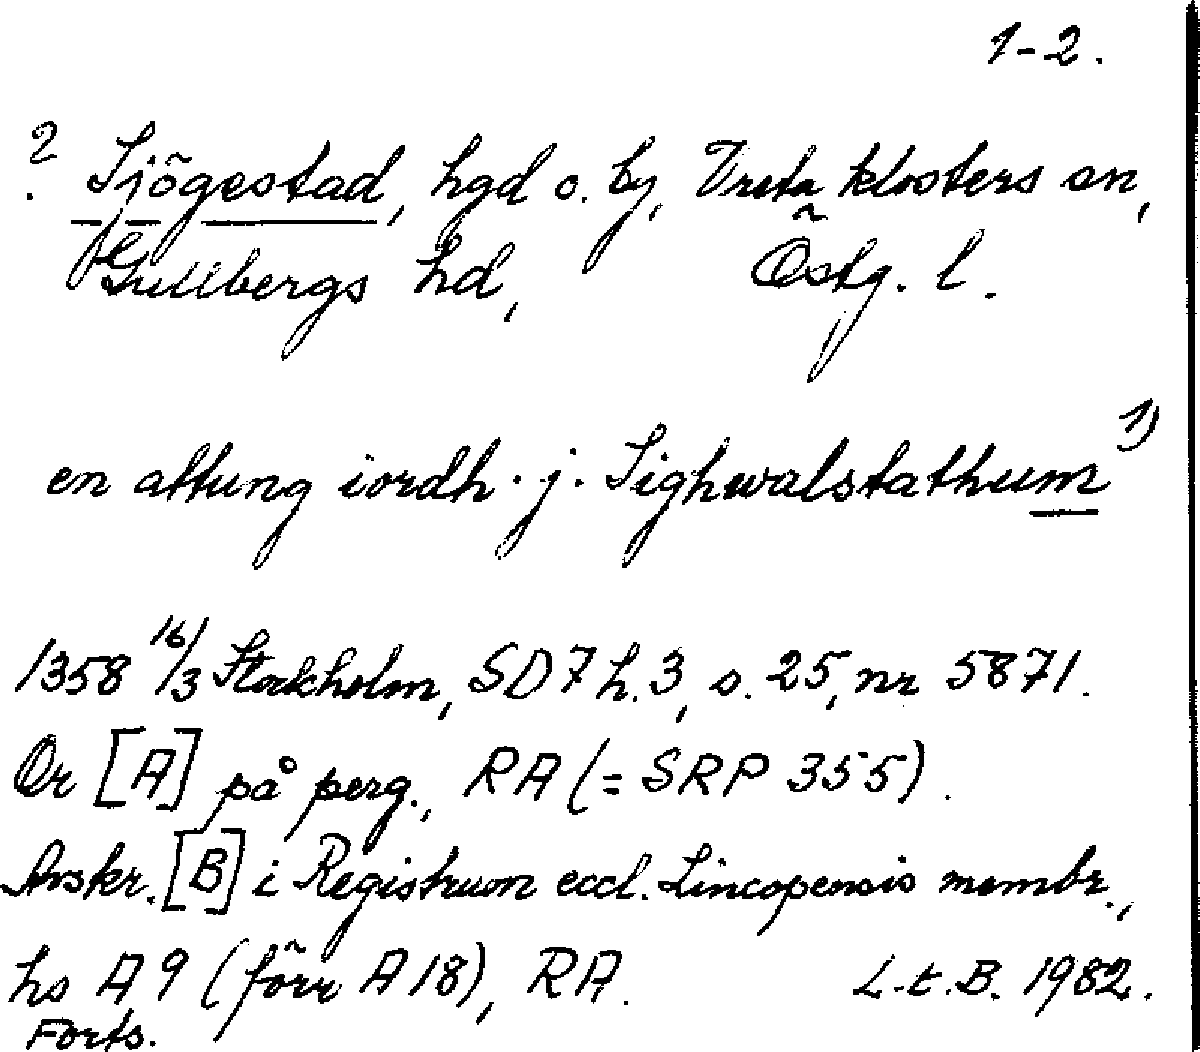 1-2.
? Sjögestad, hgd o. by, Vreta klosters sn,
Gullbergs hd, Östg. l.
en attung iordh. j. Sighwalstathum 1)
1358 16/3 Stockholm, SD 7 h. 3, s. 25, nr 5871.
Or [A] på perg., RA (= SRP 355).
Avskr. [B] i Registrum eccl. Lincopensis membr.,
hs A 9 (förr A 18), RA. L.t.B. 1982.
Forts.